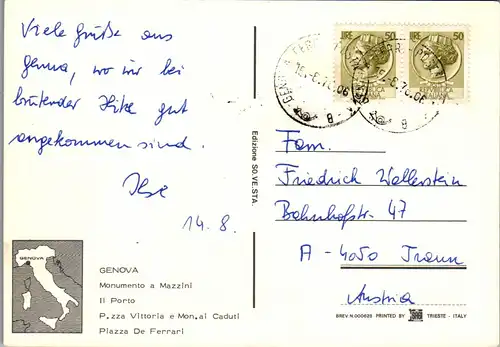 Viele Grüße aus
Genua, wo wir bei
brütender Hitze gut
angekommen sind.
Ilse
14.8.
GENOVA
GENOVA
Monumento a Mazzini
Il Porto
P.zza Vittoria e Mon.ai Caduti
Piazza De Ferrari
Edizione SO.VE.STA.
LIRE 50
LIRE 50
Fam.
Friedrich Wallerstein
Bahnhofstr. 47
A - 4050 Traun
Austria
BREV.N.000628 PRINTED BY TRIESTE - ITALY